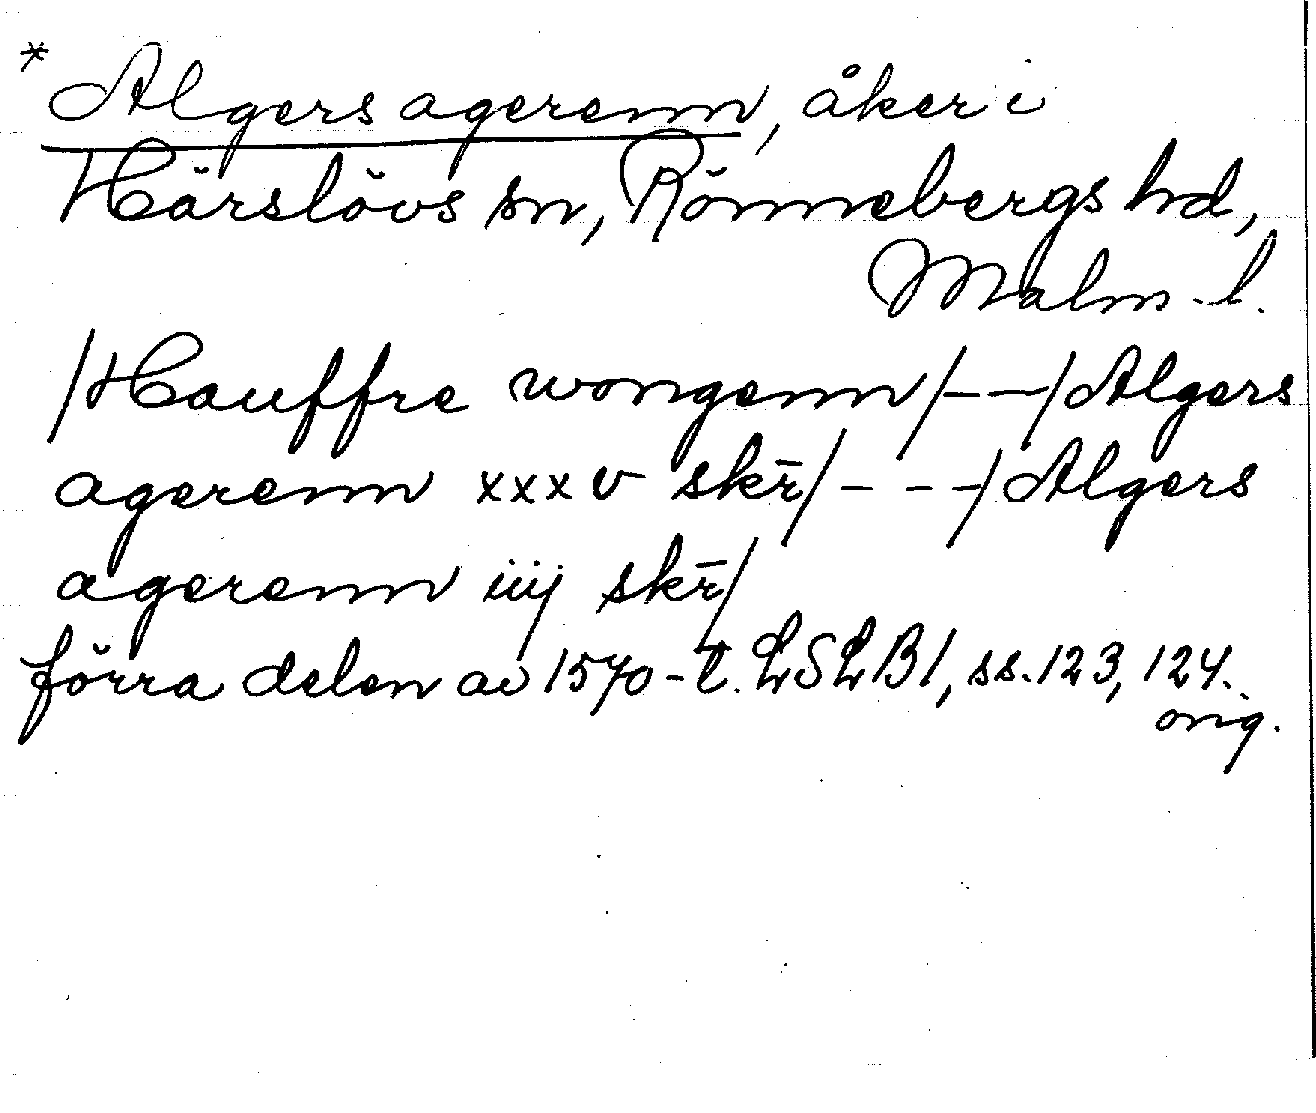 * Algers agerenn, åker i
Härslövs sn, Rönnebergs hd,
Malm-l.
/Hauffre wongenn/---/Algers
agerenn xxxv skr̄/---/Algers
agerenn iiij skr̄/
förra delen av 1570-t. LSLB1, ss. 123, 124.
orig.